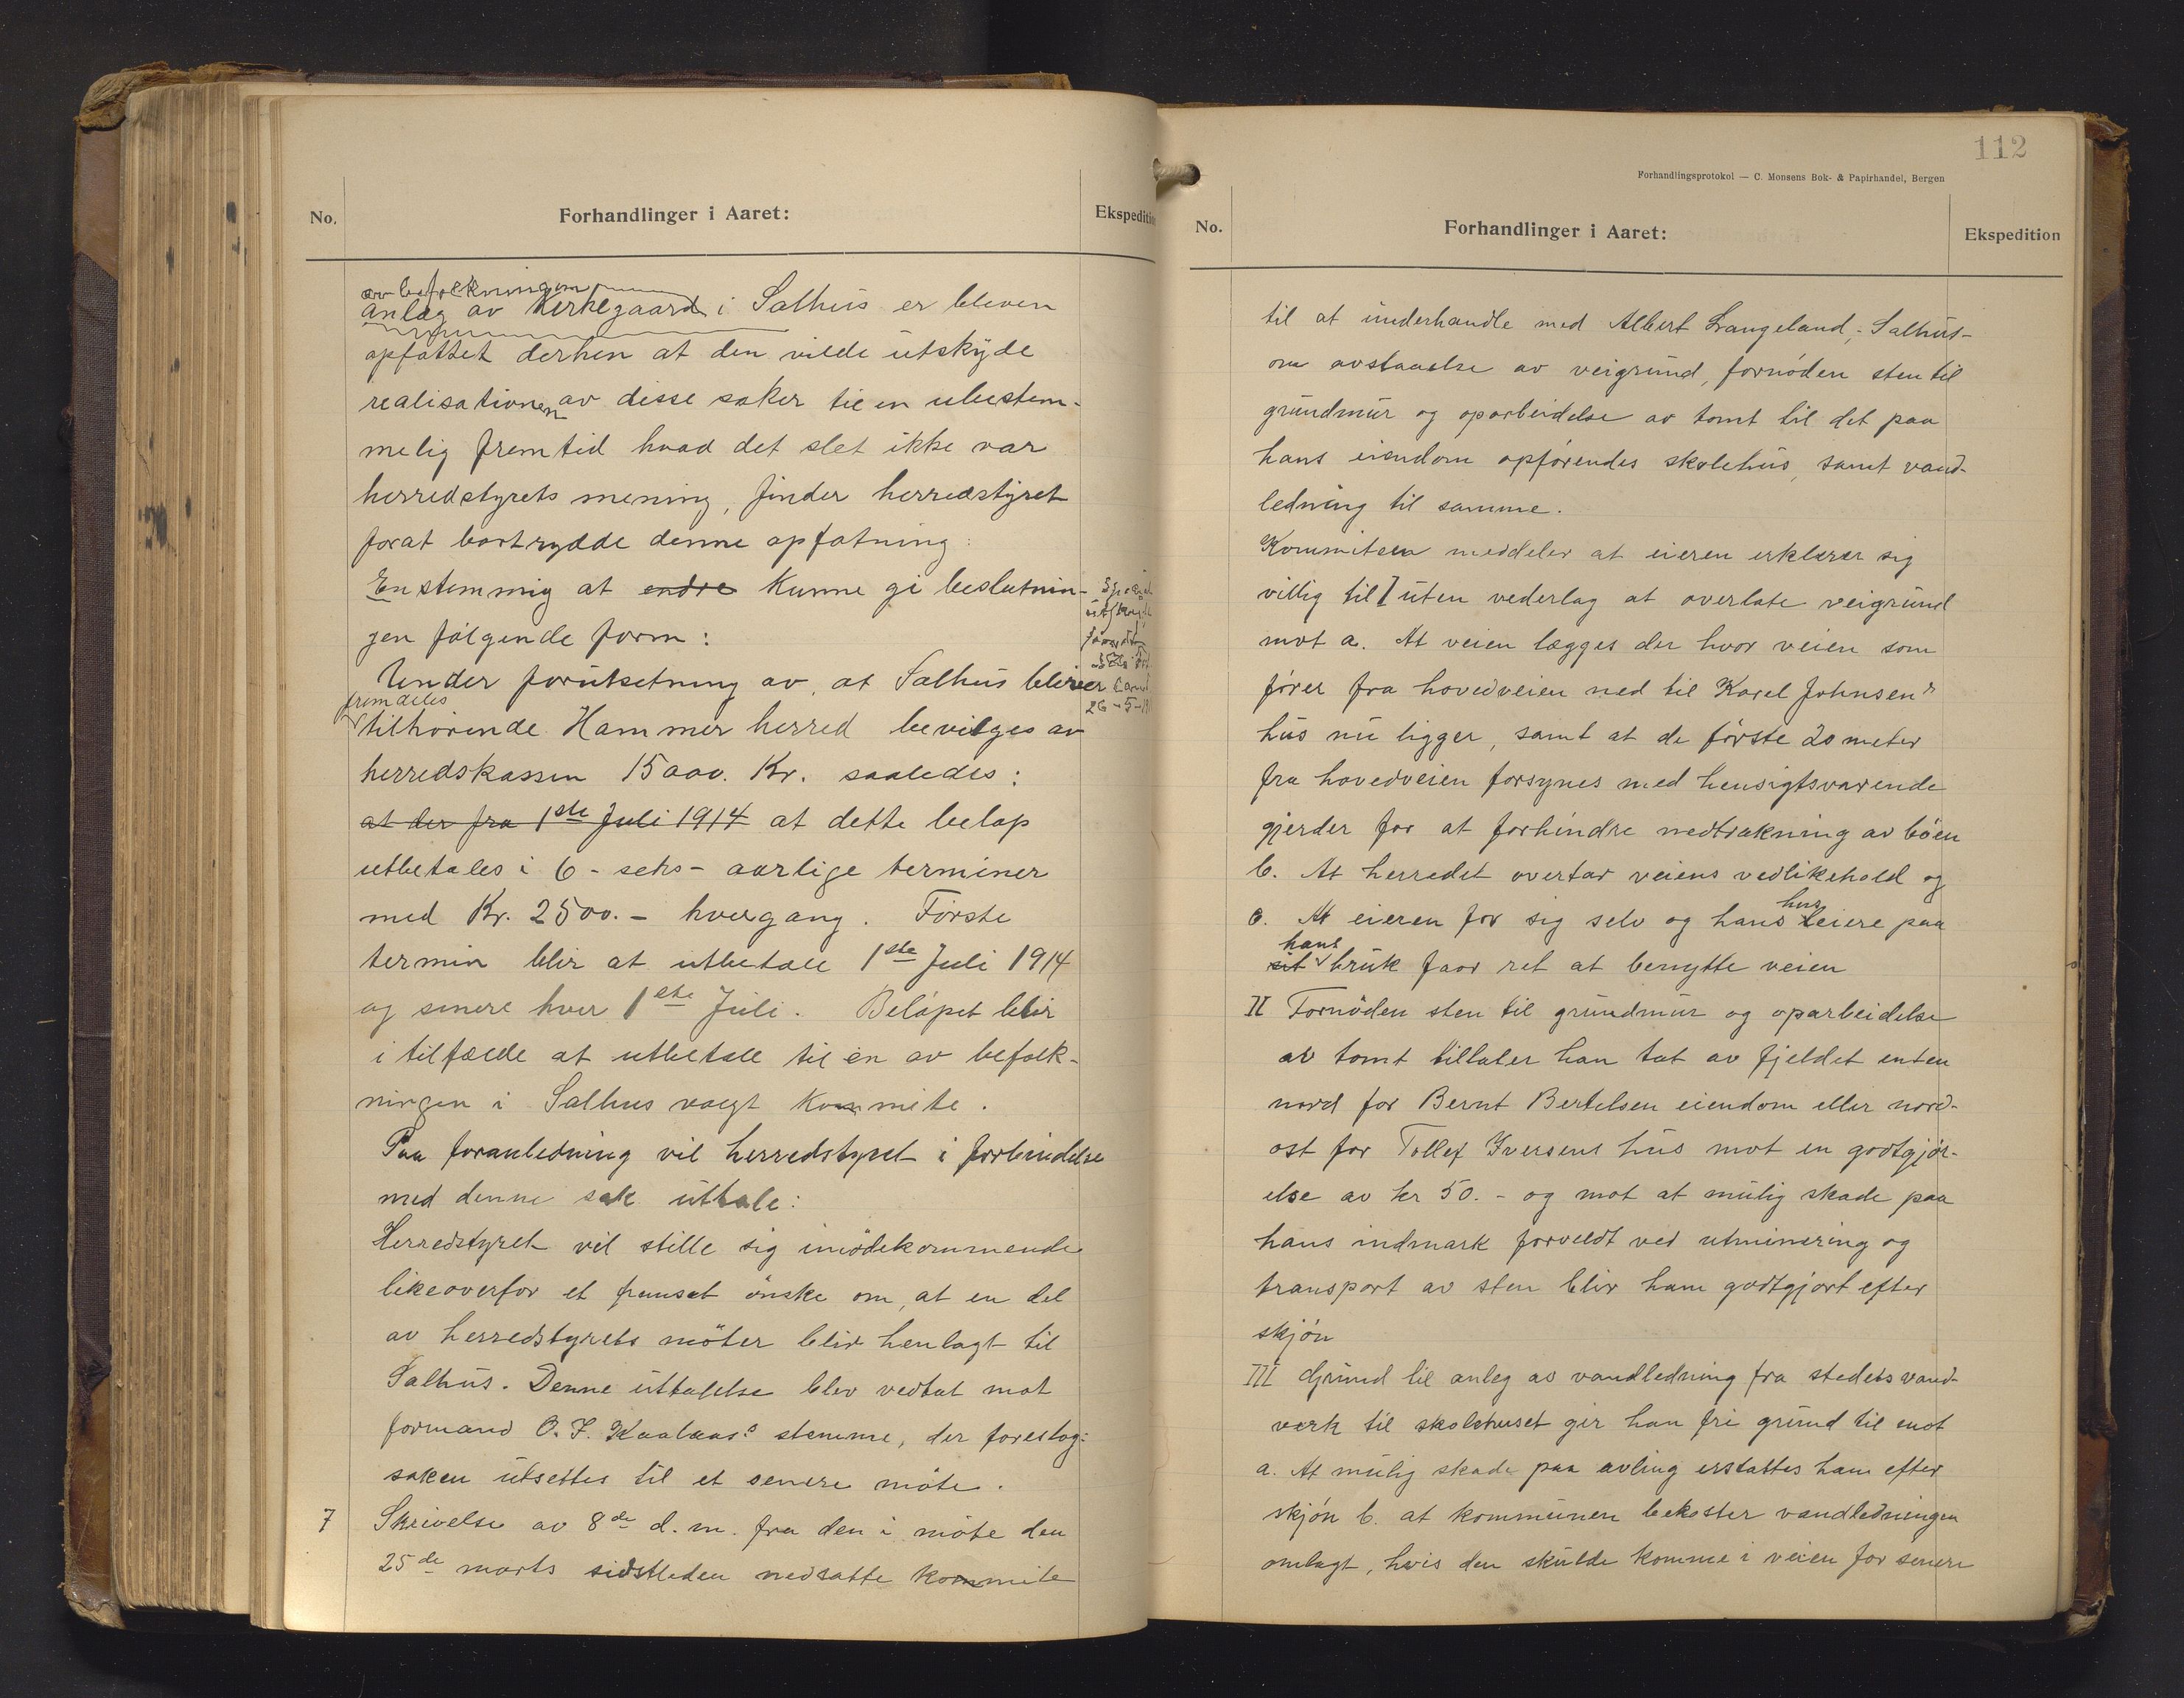 No.
Forhandlinger i Aaret:
Ekspeditio
av befolkningen
anlæg av Kirkegaard i Salhus er bleven
opfattet derhen at den vilde utskyde
realisationen av disse saker til en ubestem-
melig fremtid hvad det slet ikke var
herredstyrets mening, finder herredstyret
forat bortrydde denne opfatning:
Enstemmig at endre kunne gi beslutnin-
gen følgende form:
Under forutsetning av, at Salhus bliver
fremdeles
tilhørende Hammer herred bevilges av
herredskassen 15000. Kr. saaledes:
at der fra 1ste Juli 1914 at dette beløp
utbetales i 6 - seks - aarlige terminer
med Kr. 2500.- hvergang. Første
termin blir at utbetale 1ste Juli 1914
og senere hver 1ste Juli. Beløpet blir
i tilfælde at utbetale til en av befolk-
ningen i Salhus valgt kommite.
Paa foranledning vil herredstyret i forbindelse
med denne sak uttale:
Herredstyret vil stille sig imødekommende
likeoverfor et fremsat ønske om, at en del
av herredstyrets møter blir henlagt til
Salhus. Denne uttalelse blev vedtat mot
formand O. J. Kaalaas's stemme, der foreslog:
saken utsettes til et senere møte.
7 Skrivelse av 8de d.m. fra den i møte den
25de marts sidstleden nedsatte kommite
26-5-
112
Forhandlingsprotokol — C. Monsens Bok- & Papirhandel, Bergen
No.
Forhandlinger i Aaret:
Ekspedition
til at underhandle med Albert Langeland, Salhus-
om avstaaelse av veigrund, fornøden sten til
grundmur og oparbeidelse av tomt til det paa
hans eiendom opførendes skolehus, samt vand-
ledning til samme.
Kommiteen meddeler at eieren erklærer sig
villig til I uten vederlag at overlate veigrund
mot a. At veien lægges der hvor veien som
fører fra hovedveien ned til Karel Johnsens
hus nu ligger, samt at de første 20 meter
fra hovedveien forsynes med hensigtsvarende
gjerder for at forhindre nedtrakning av bøen
b. At herredet overtar veiens vedlikehold og
c. At eieren for sig selv og hans husleiere paa
sit hans bruk faar ret at benytte veien
II Fornøden sten til grundmur og oparbeidelse
av tomt tillater han tat av fjeldet enten
nord for Bernt Bertelsen eiendom eller nord-
ost for Tollef Iversens hus mot en godtgjør-
else av kr 50.- og mot at mulig skade paa
hans indmark forvoldt ved utminering og
transport av sten blir ham godtgjort efter
skjøn
III Grund til anleg av vandledning fra stedets vand-
verk til skolehuset gir han fri grund til mot
a. At mulig skade paa avling erstattes ham efter
skjøn b. at kommunen bekoster vandledningen
omlagt, hvis den skulde komme i veien for senere